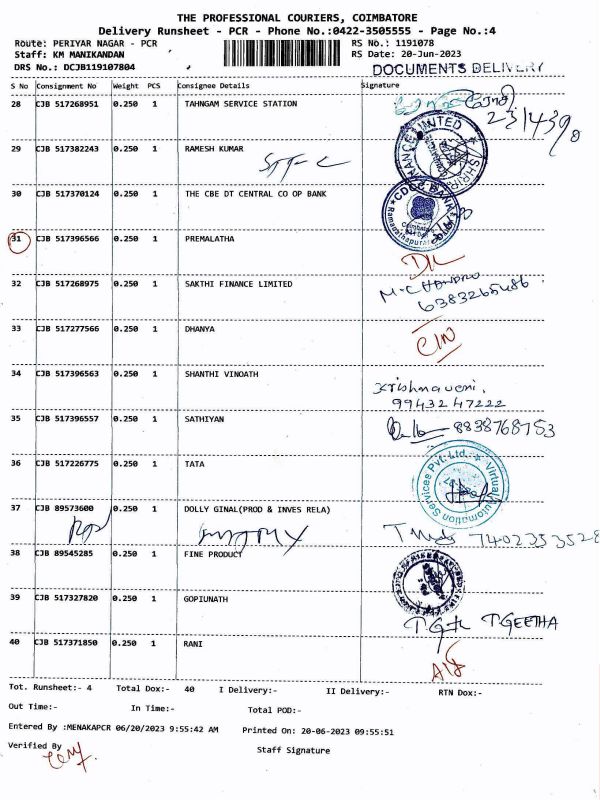 THE PROFESSIONAL COURIERS, COIMBATORE
Delivery Runsheet - PCR - Phone No.:0422-3505555 - Page No.:4
Route: PERIYAR NAGAR - PCR RS No.: 1191078
Staff: KM MANIKANDAN RS Date: 20-Jun-2023
DRS No.: DCJB119107804 DOCUMENTS DELIVERY
S No Consignment No Weight PCS Consignee Details Signature
28 CJB 517268951 0.250 1 TAHNGAM SERVICE STATION
29 CJB 517382243 0.250 1 RAMESH KUMAR
30 CJB 517370124 0.250 1 THE CBE DT CENTRAL CO OP BANK
31 CJB 517396566 0.250 1 PREMALATHA
DL
32 CJB 517268975 0.250 1 SAKTHI FINANCE LIMITED
33 CJB 517277566 0.250 1 DHANYA
34 CJB 517396563 0.250 1 SHANTHI VINOATH
Krishnaveni.
9943247222
35 CJB 517396557 0.250 1 SATHIYAN
8838768753
36 CJB 517226775 0.250 1 TATA
Virtual Automation Services Pvt. Ltd.
37 CJB 89573600 0.250 1 DOLLY GINAL(PROD & INVES RELA)
7402353528
38 CJB 89545285 0.250 1 FINE PRODUCT
39 CJB 517327820 0.250 1 GOPIUNATH
T GEETHA
40 CJB 517371850 0.250 1 RANI
Tot. Runsheet:- 4 Total Dox:- 40 I Delivery:- II Delivery:- RTN Dox:-
Out Time:- In Time:- Total POD:-
Entered By :MENAKAPCR 06/20/2023 9:55:42 AM Printed On: 20-06-2023 09:55:51
Verified By
Staff Signature